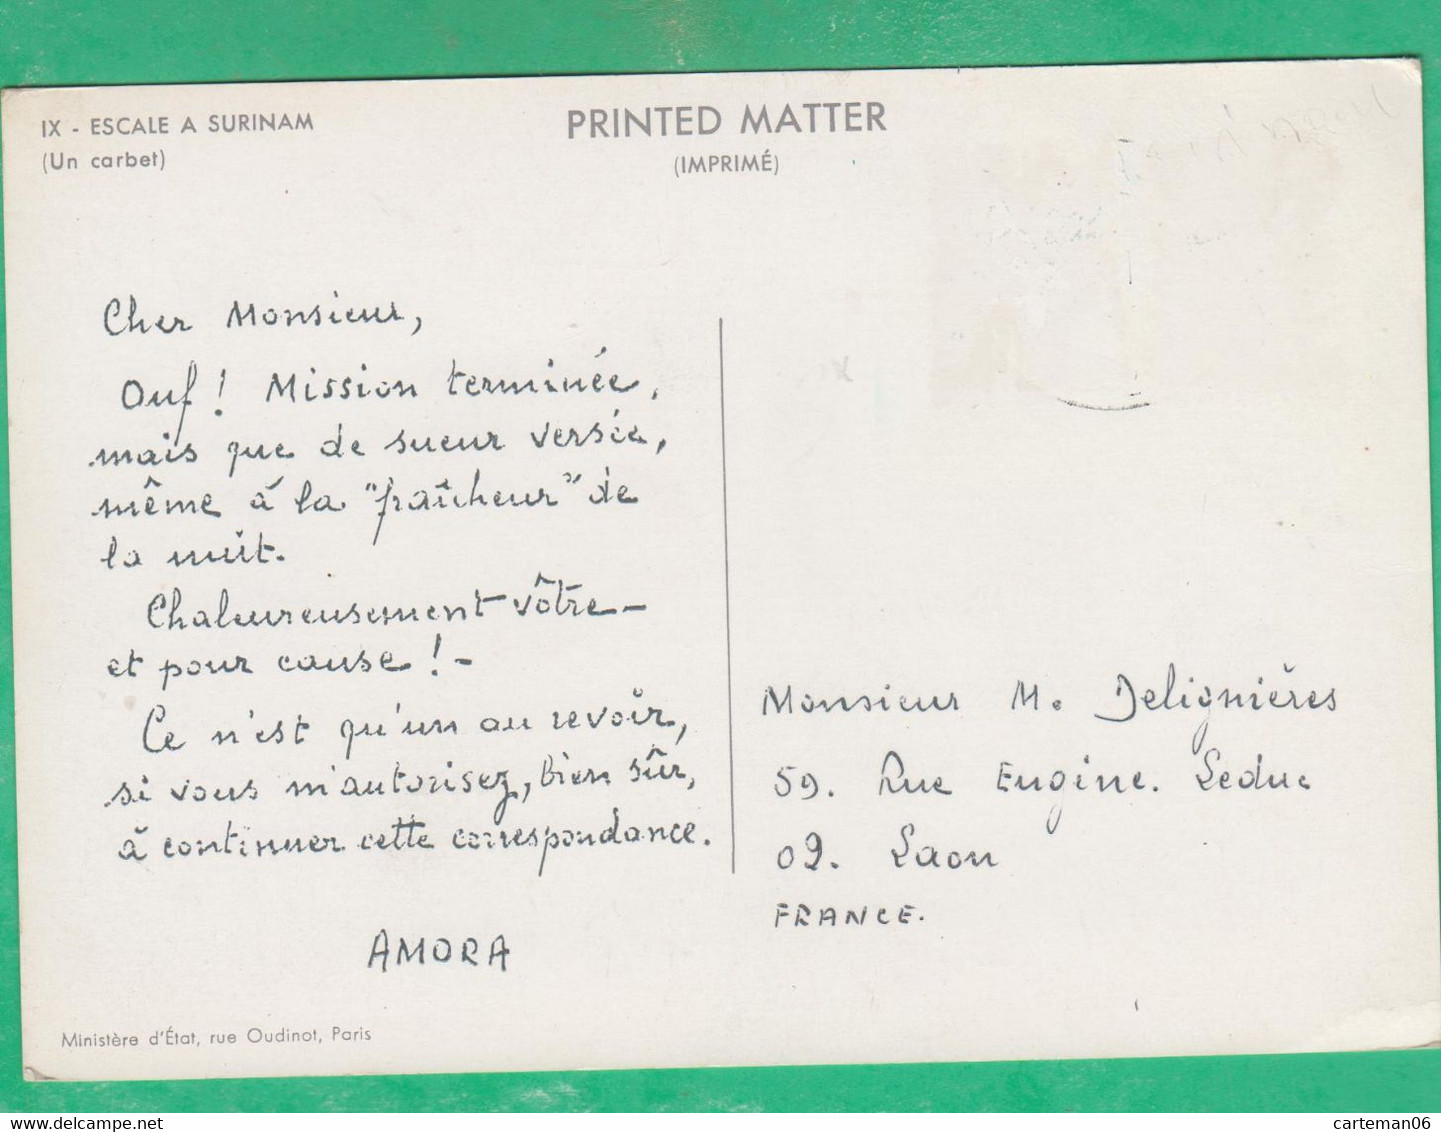 IX - ESCALE A SURINAM
(Un carbet)
PRINTED MATTER
(IMPRIMÉ)
Cher Monsieur,
Ouf ! Mission terminée,
mais que de sueur versée,
même à la "fraîcheur" de
la nuit.
Chaleureusement vôtre -
et pour cause ! -
Ce n'est qu'un au revoir,
si vous m'autorisez, bien sûr,
à continuer cette correspondance.
AMORA
Monsieur M. Delignières
59. Rue Eugène. Leduc
02. Laon
FRANCE.
Ministère d'État, rue Oudinot, Paris
carteman06